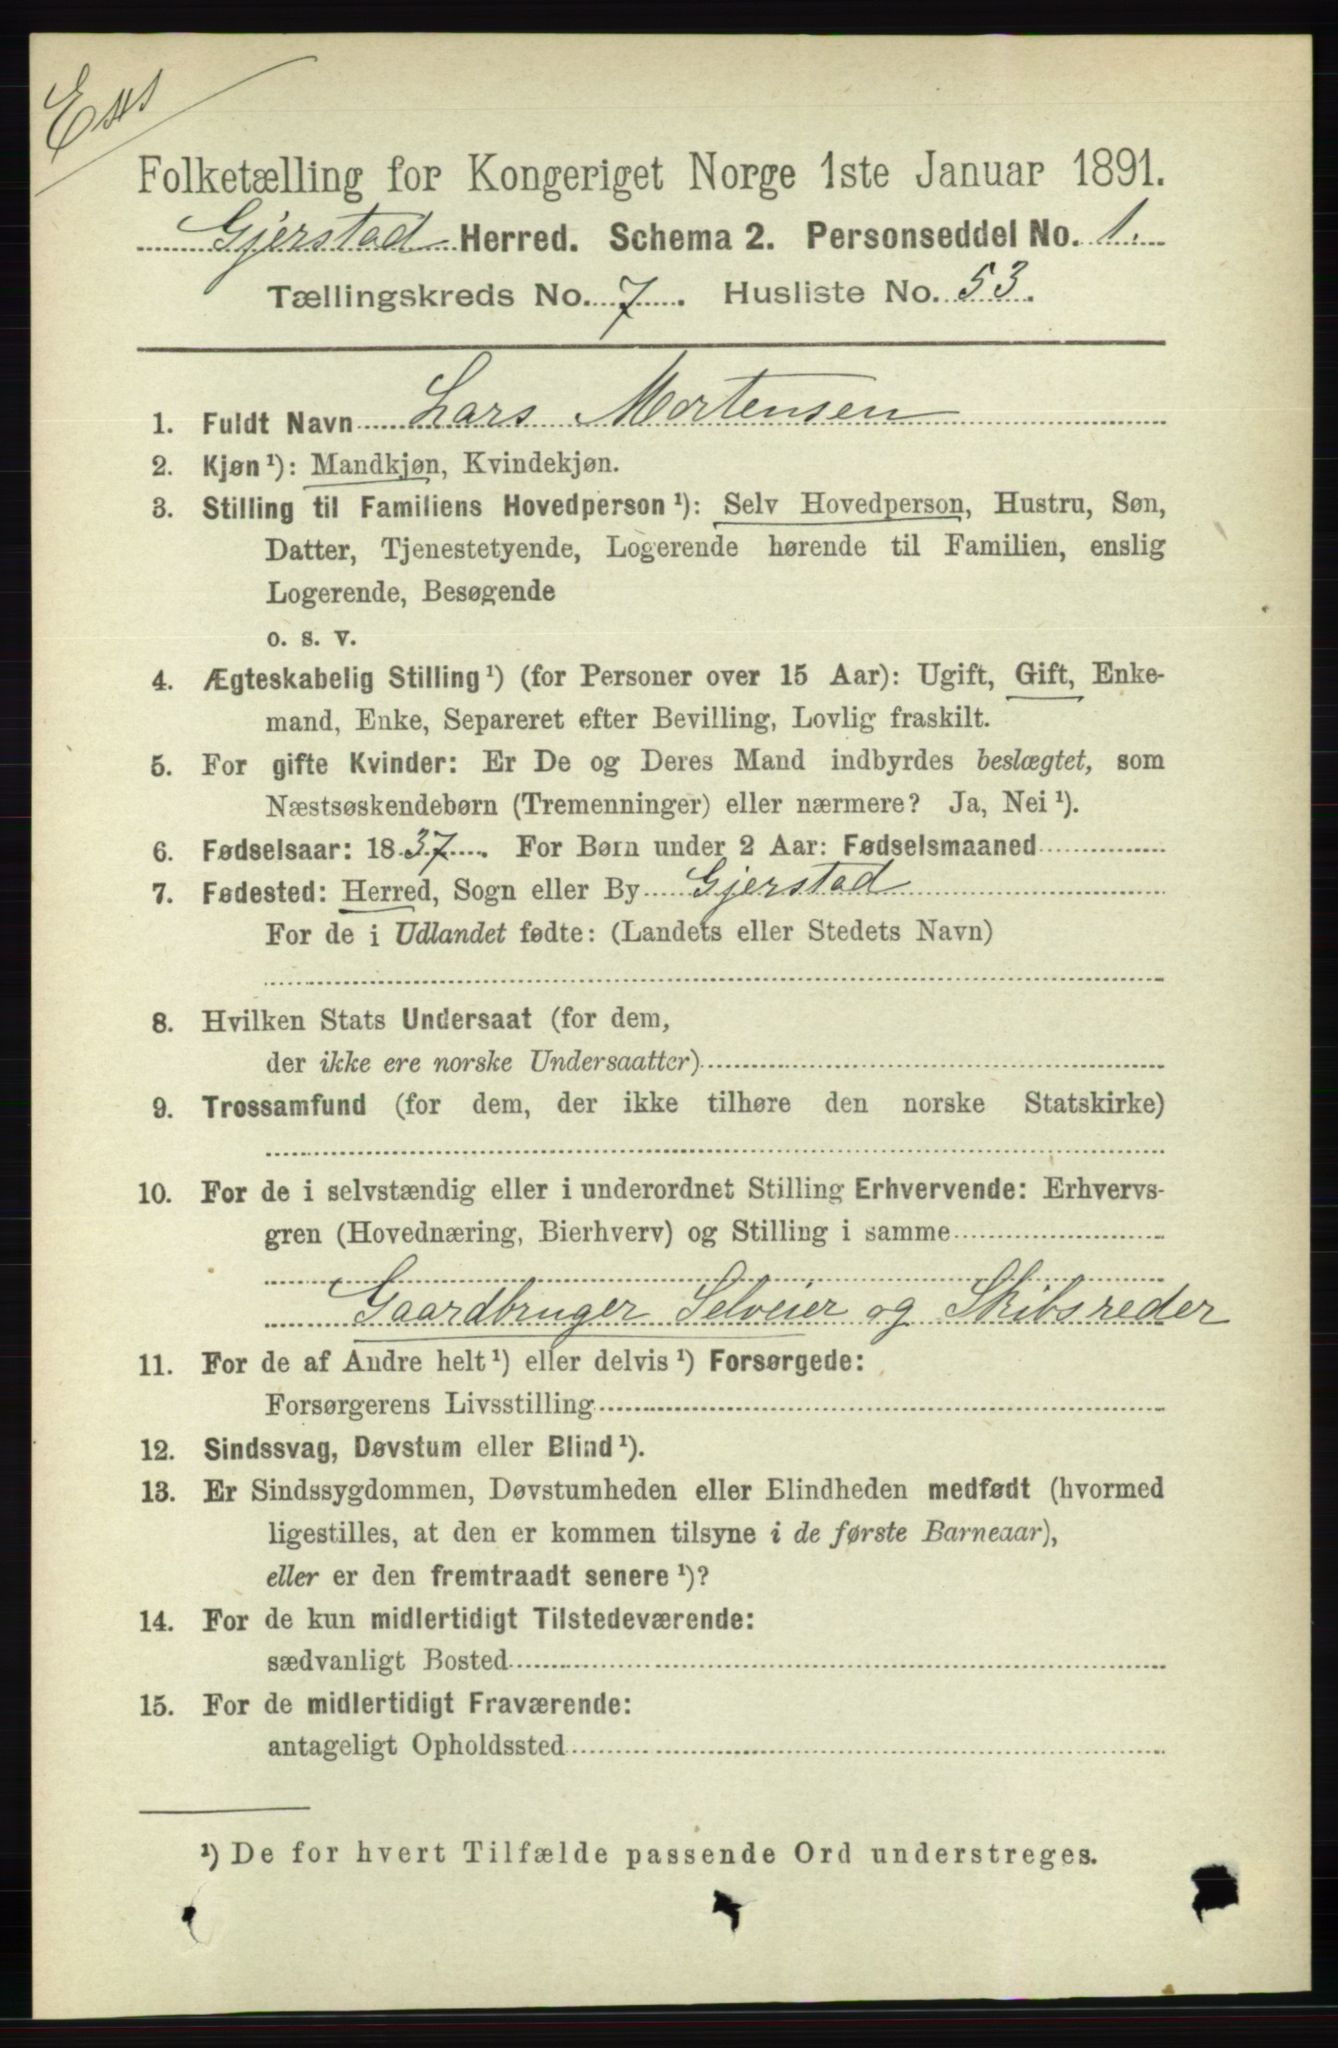 Folketælling for Kongeriget Norge 1ste Januar 1891.
Gjerstad Herred. Schema 2. Personseddel No. 1.
Tællingskreds No. 7. Husliste No. 53.
1. Fuldt Navn Lars Mortensen
2. Kjøn¹): Mandkjøn, Kvindekjøn.
3. Stilling til Familiens Hovedperson¹): Selv Hovedperson, Hustru, Søn,
Datter, Tjenestetyende, Logerende hørende til Familien, enslig
Logerende, Besøgende
o. s. v.
4. Ægteskabelig Stilling¹) (for Personer over 15 Aar): Ugift, Gift, Enke-
mand, Enke, Separeret efter Bevilling, Lovlig fraskilt.
5. For gifte Kvinder: Er De og Deres Mand indbyrdes beslægtet, som
Næstsøskendebørn (Tremenninger) eller nærmere? Ja, Nei¹).
6. Fødselsaar: 1837. For Børn under 2 Aar: Fødselsmaaned
7. Fødested: Herred, Sogn eller By Gjerstad
For de i Udlandet fødte: (Landets eller Stedets Navn)
8. Hvilken Stats Undersaat (for dem,
der ikke ere norske Undersaatter)
9. Trossamfund (for dem, der ikke tilhøre den norske Statskirke)
10. For de i selvstændig eller i underordnet Stilling Erhvervende: Erhvervs-
gren (Hovednæring, Bierhverv) og Stilling i samme
Gaardbruger Selveier og Skibsreder
11. For de af Andre helt¹) eller delvis¹) Forsørgede:
Forsørgerens Livsstilling
12. Sindssvag, Døvstum eller Blind¹).
13. Er Sindssygdommen, Døvstumheden eller Blindheden medfødt (hvormed
ligestilles, at den er kommen tilsyne i de første Barneaar),
eller er den fremtraadt senere¹)?
14. For de kun midlertidigt Tilstedeværende:
sædvanligt Bosted
15. For de midlertidigt Fraværende:
antageligt Opholdssted
¹) De for hvert Tilfælde passende Ord understreges.